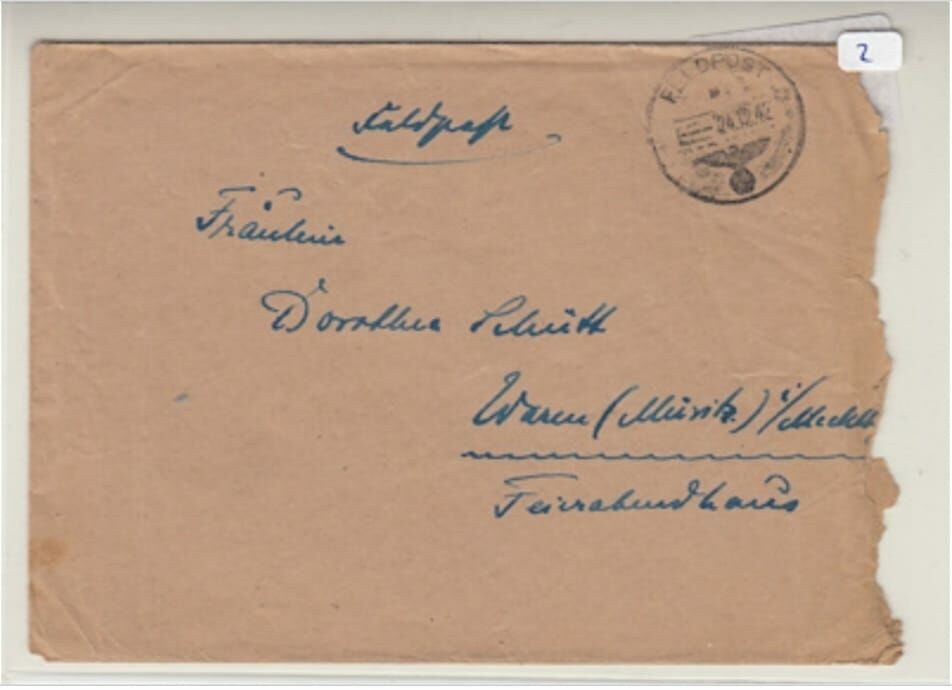 2
FELDPOST
24.12.42
Feldpost
Fräulein
Dorothea Schütt
Waren (Müritz.) i/Meckl
Feierabendhaus